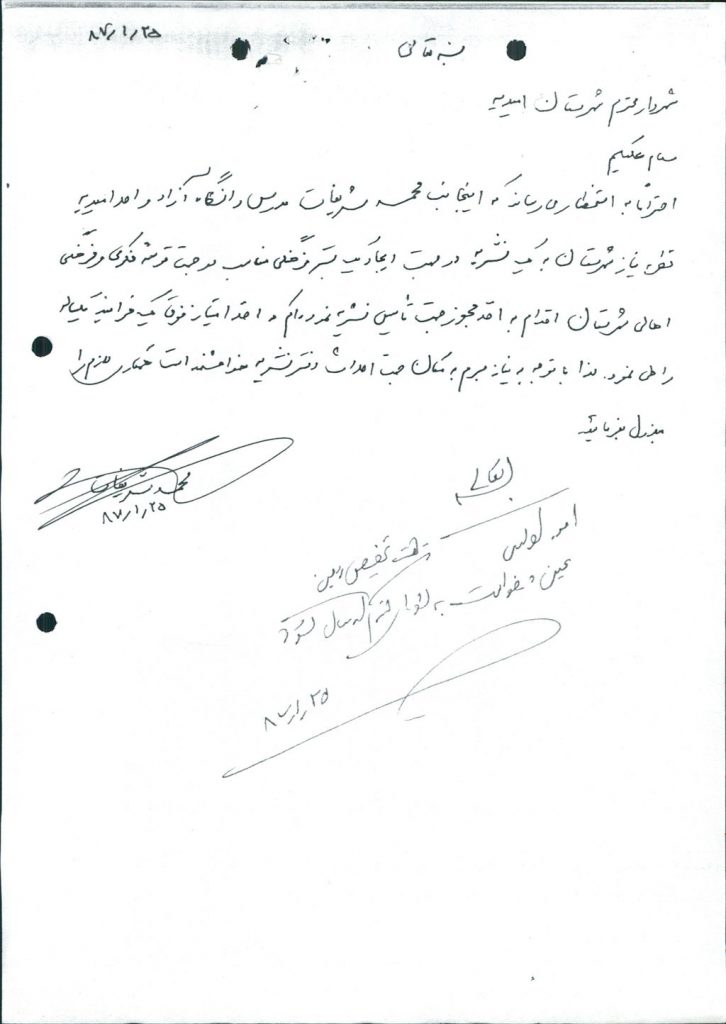 ۸۷/۱/۲۵
بسمه تعالی
شهردار محترم شهرستان امیدیه
سلام علیکم
احتراماً به استحضار می رساند که اینجانب محمد شریفات مدرس دانشگاه آزاد واحد امیدیه
نظر به نیاز شهرستان به یک نشریه در جهت ایجاد یک بستر فرهنگی مناسب در جهت توسعه فکری و فرهنگی
اهالی شهرستان اقدام به اخذ مجوز جهت تأسیس نشریه نموده ام و اخذ امتیاز فوق یک فرآیند یکساله
را طی نمود. لذا با توجه به نیاز مبرم به مکان جهت احداث دفتر نشریه خواهشمند است همکاری لازم را
مبذول بفرمائید
محمد شریفات
۸۷/۱/۲۵
جهت تخصیص زمین
به شورای ارسال شود
۸۷/۱/۲۵